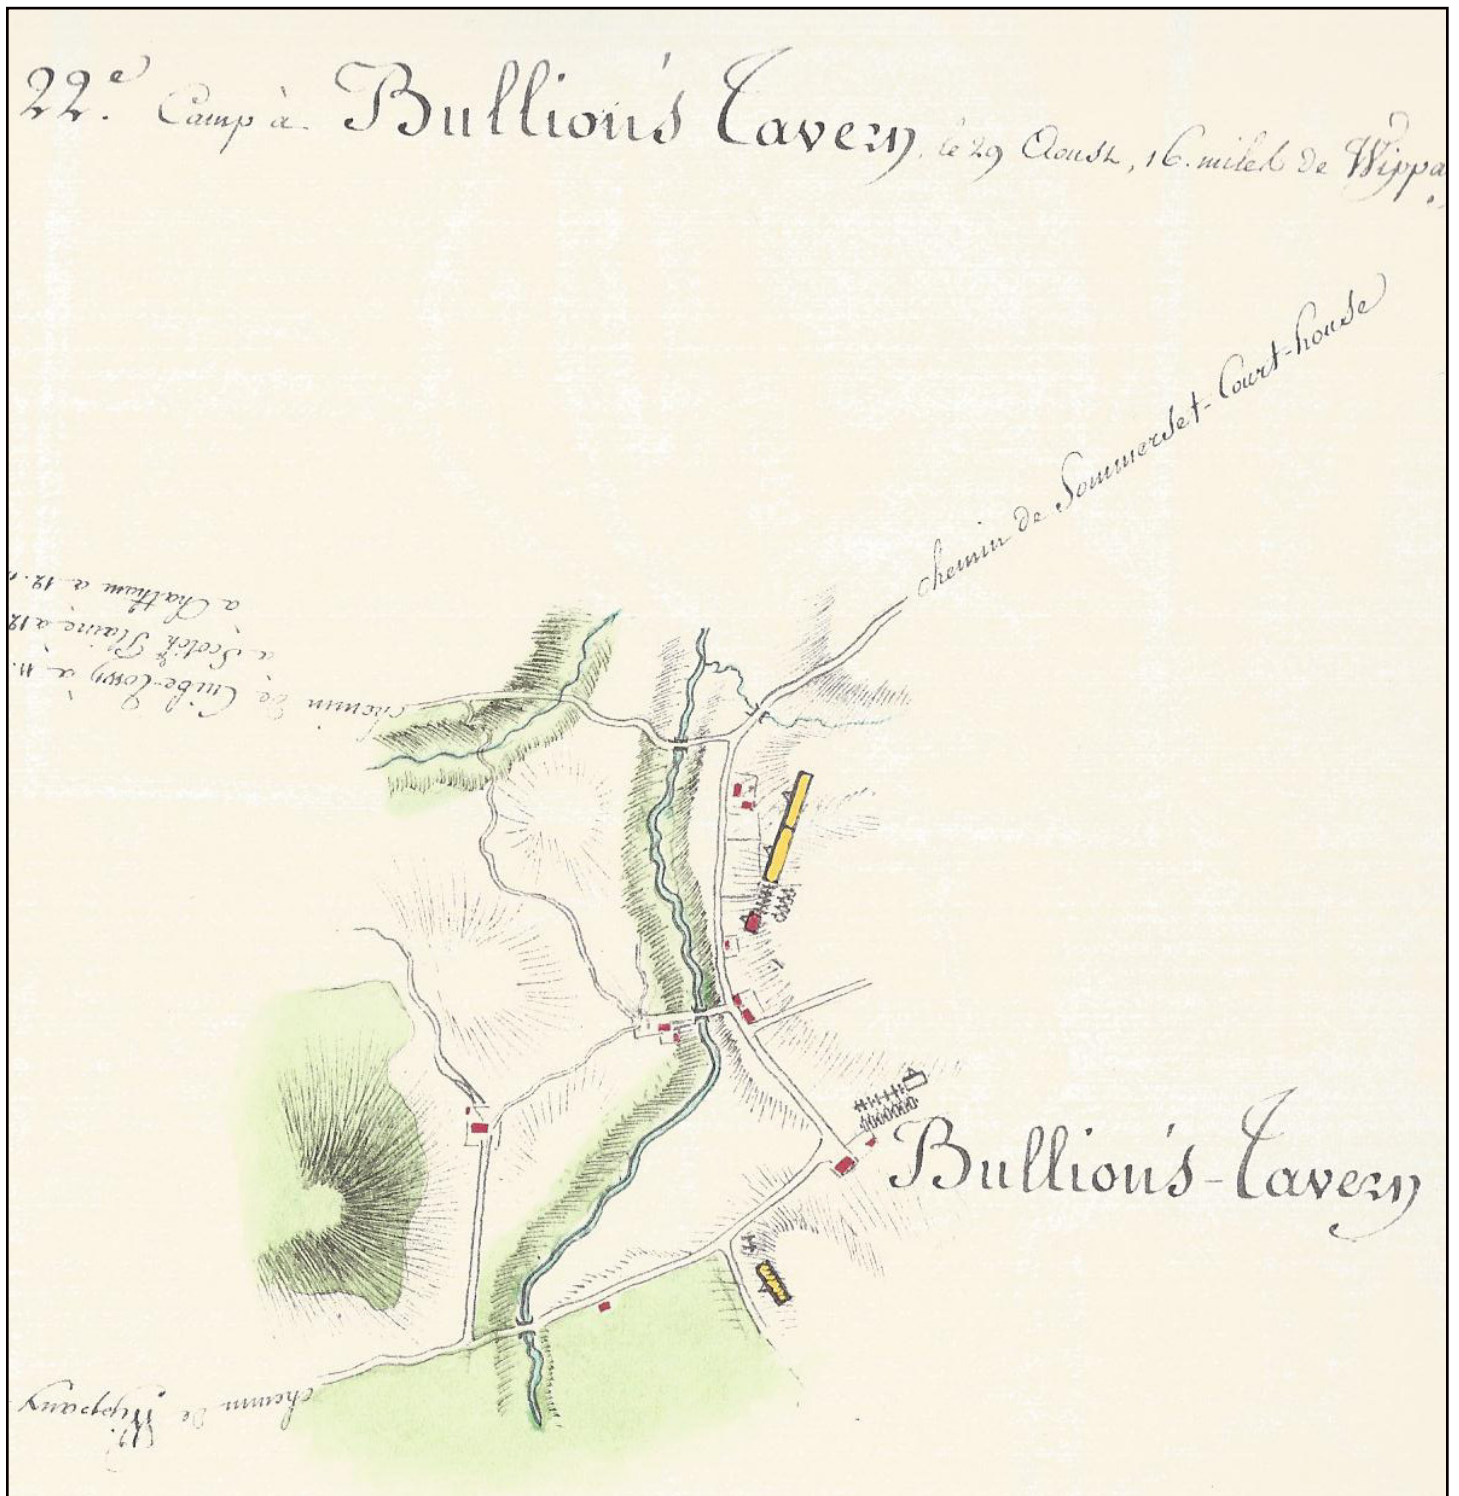 22.e Camp à Bullion's Tavern, le 29 Aoust, 16. miles de Wippa
chemin de Sommerset-Court-house
a Chattam a 12.
a Scotch Plaine a 12
chemin de à 11.
Bullion's-Tavern
chemin de Wippany